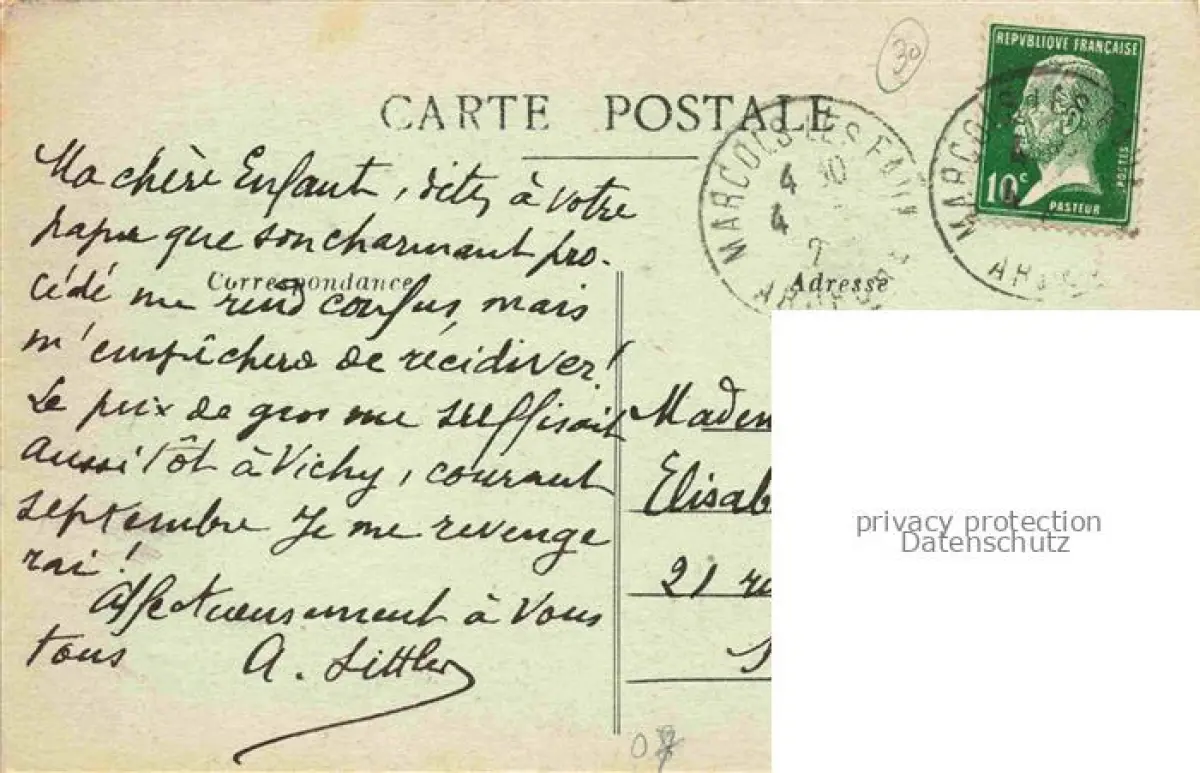 30
REPVBLIQUE FRANÇAISE
10c
POSTES
PASTEUR
CARTE POSTALE
MARCOLS LES EAUX
4 30
4
MARCOLS
Correspondance
Adresse
Ma chère Enfant, dites à votre
papa que son charmant pro-
cédé me rend confus, mais
m'empêchera de récidiver!
Le prix de gros me suffisait
aussitôt à Vichy, courant
septembre Je me revenge
rai!
Affectueusement à vous
tous A. Sittler
Madem
Elisab
21 ru
privacy protection
Datenschutz